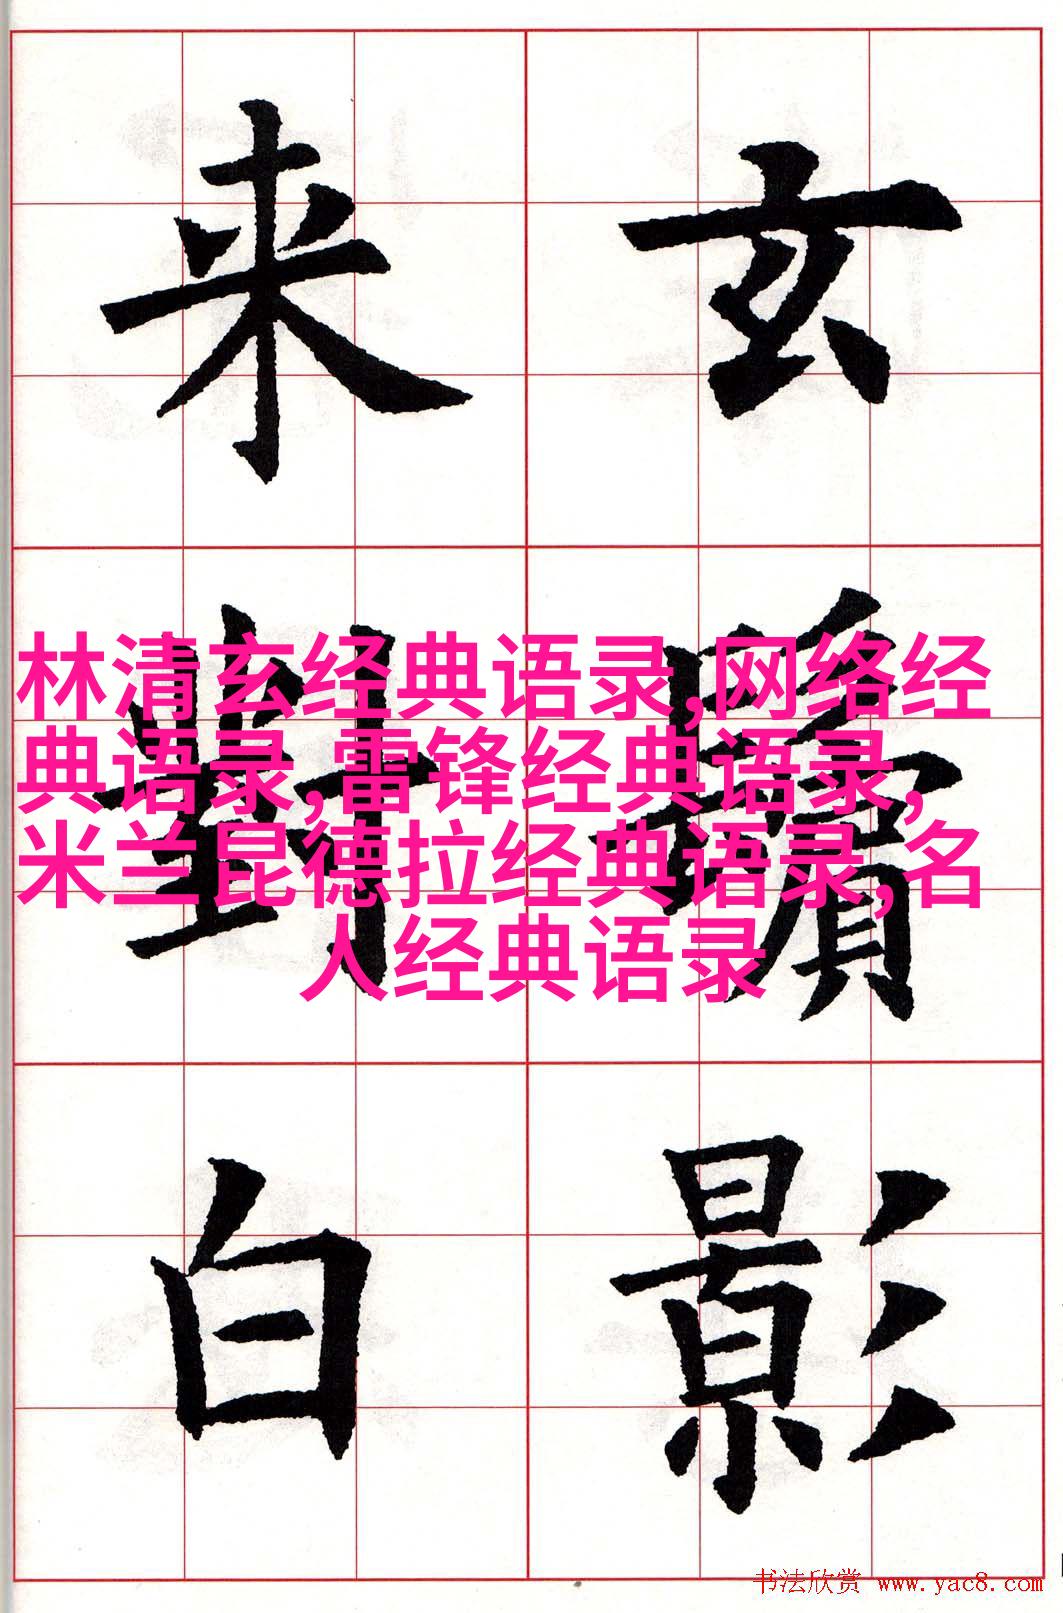 玄鬢影
来對白
林清玄经典语录,网络经
典语录,雷锋经典语录,
米兰昆德拉经典语录,名
人经典语录
书法欣赏 www.yac8.com